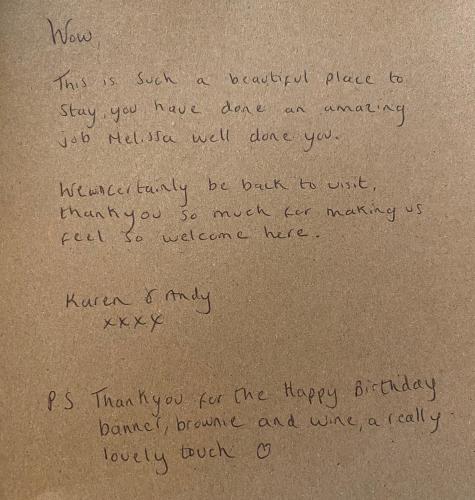 Wow,
This is such a beautiful place to
stay, you have done an amazing
job Melissa well done you.
certainly be back to visit,
thankyou so much for making us
feel so welcome here.
Karen & Andy
xxxx
P.S Thankyou for the Happy Birthday
banner, brownie and wine, a really
lovely touch ♡